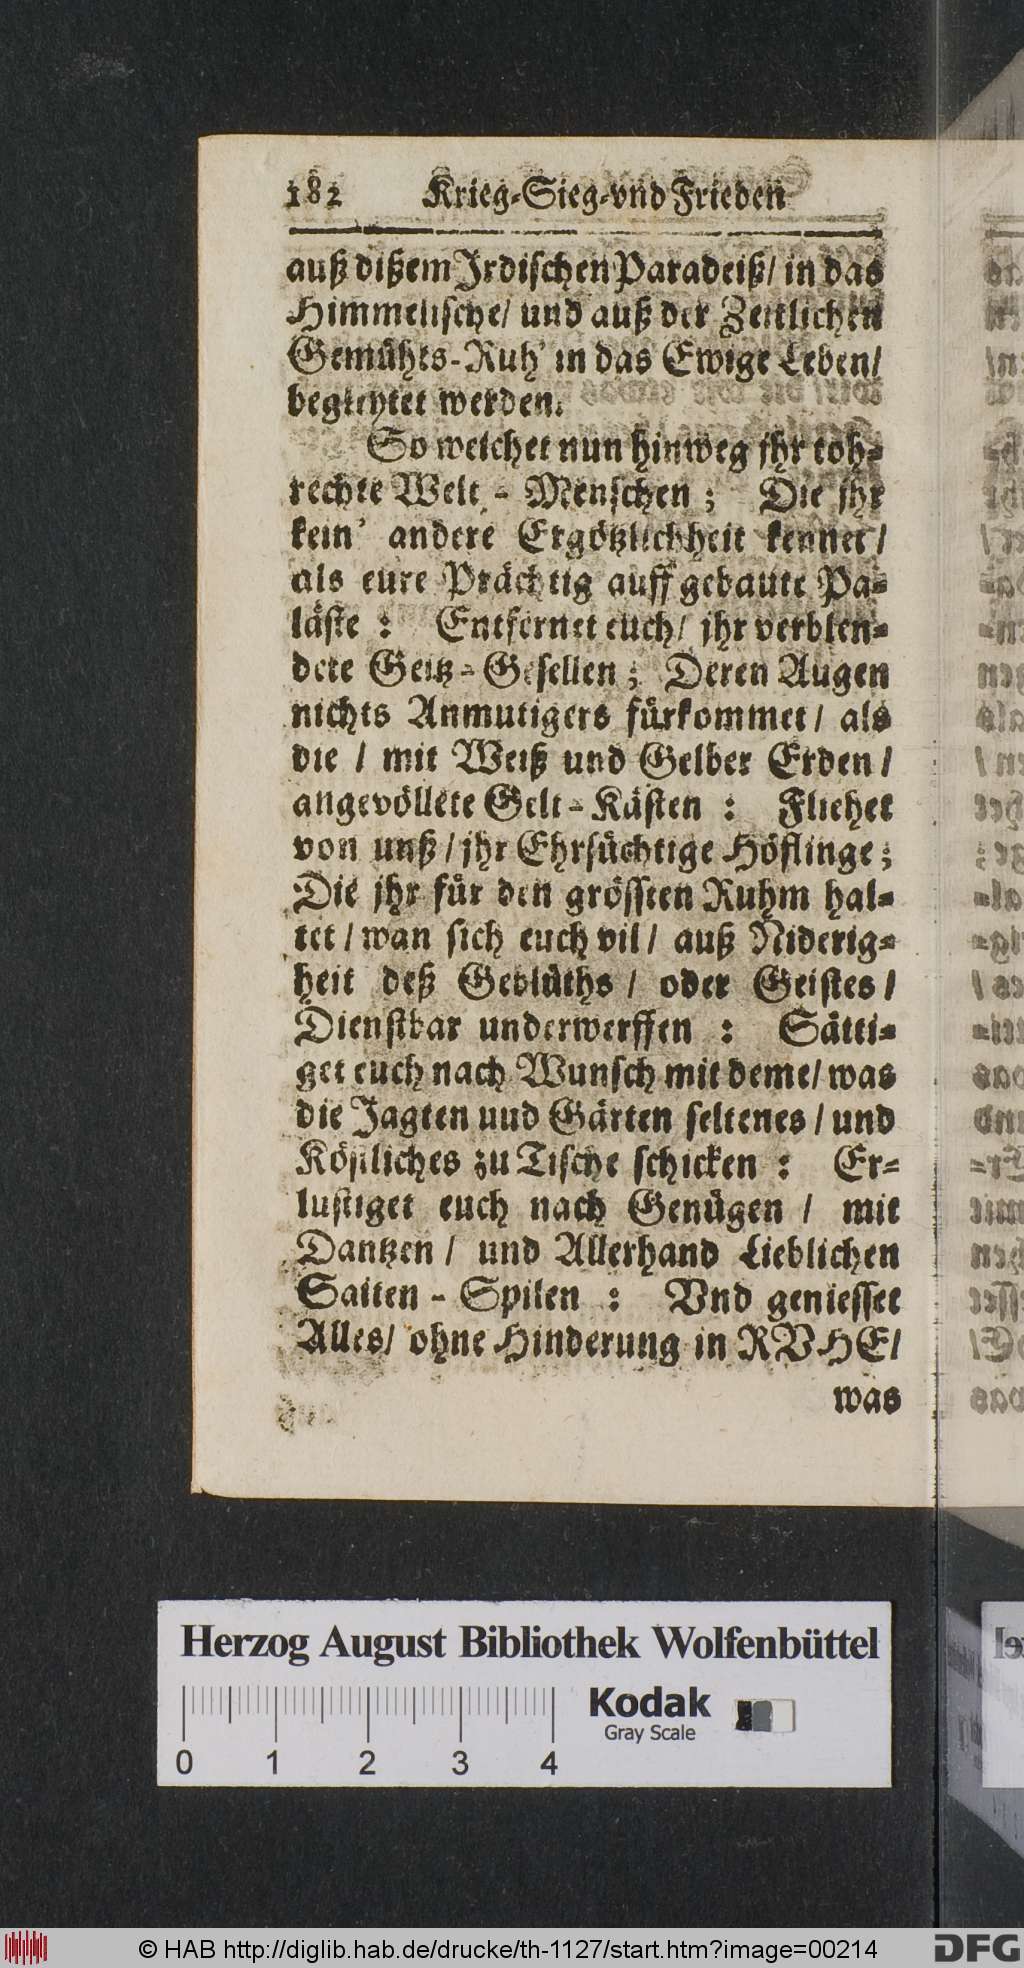 182 Krieg-Sieg-vnd Frieden
auß dißem Jrdischen Paradeiß/ in das
Himmelische/ und auß der Zeitlichen
Gemühts-Ruh' in das Ewige Leben/
begleytet werden.
So weichet nun hinweg jhr toh-
rechte Welt - Menschen; Die jhr
kein' andere Ergötzlichheit kennet/
als eure Prächtig auffgebaute Pa-
läste : Entfernet euch/ jhr verblen-
dete Geitz-Gesellen; Deren Augen
nichts Anmutigers fürkommet/ als
die / mit Weiß und Gelber Erden/
angevöllete Gelt-Kästen : Fliehet
von unß/ jhr Ehrsüchtige Höflinge;
Die jhr für den grössten Ruhm hal-
tet/ wan sich euch vil/ auß Niderig-
heit deß Geblüths / oder Geistes/
Dienstbar underwerffen : Sätti-
get euch nach Wunsch mit deme/ was
die Jagten uud Gärten seltenes/ und
Köstliches zu Tische schicken : Er-
lustiget euch nach Genügen / mit
Dantzen/ und Allerhand Lieblichen
Saiten - Spilen : Vnd geniesset
Alles/ ohne Hinderung in RVHE/
was
Herzog August Bibliothek Wolfenbüttel
Kodak
Gray Scale
0 1 2 3 4
© HAB http://diglib.hab.de/drucke/th-1127/start.htm?image=00214
DFG